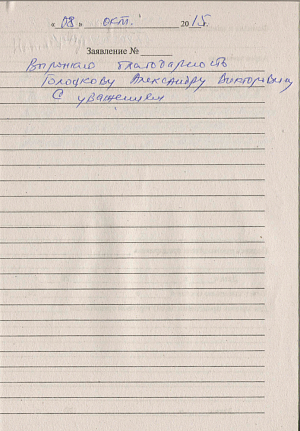 « 08 » окт. 2015.
Заявление №
Выражаю благодарность
Голоцкову Александру Викторовичу
С уважением